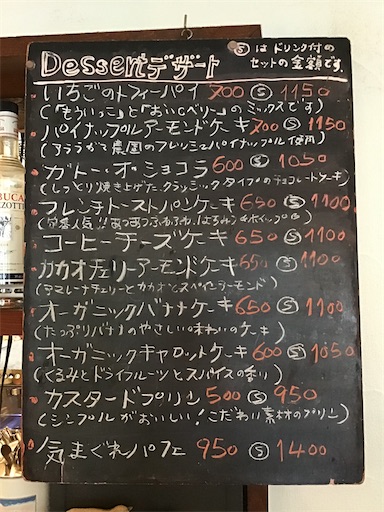 Dessertデザート
Ⓢはドリンク付の
セットの金額です。
いちごのトフィーパイ 700 Ⓢ 1150
(「もういっこ」と「おいCベリー」のミックスです)
パイナップルアーモンドケーキ 700 Ⓢ 1150
農園のフレッシュパイナップル使用)
ガトー・オ・ショコラ 600 Ⓢ 1050
(しっとり焼き上げたクラシックタイプのチョコレートケーキ)
フレンチトーストパンケーキ 650 Ⓢ 1100
コーヒーチーズケーキ 650 Ⓢ 1100
カカオチェリーアーモンドケーキ 650 Ⓢ 1100
(アマレーナチェリーとカカオとスペインアーモンド)
オーガニックバナナケーキ 650 Ⓢ 1100
(たっぷりバナナのやさしい味わいのケーキ)
オーガニックキャロットケーキ 600 Ⓢ 1050
(くるみとドライフルーツとスパイスの香り)
カスタードプリン 500 Ⓢ 950
(シンプルがおいしい!こだわり素材のプリン)
気まぐれパフェ 950 Ⓢ 1400